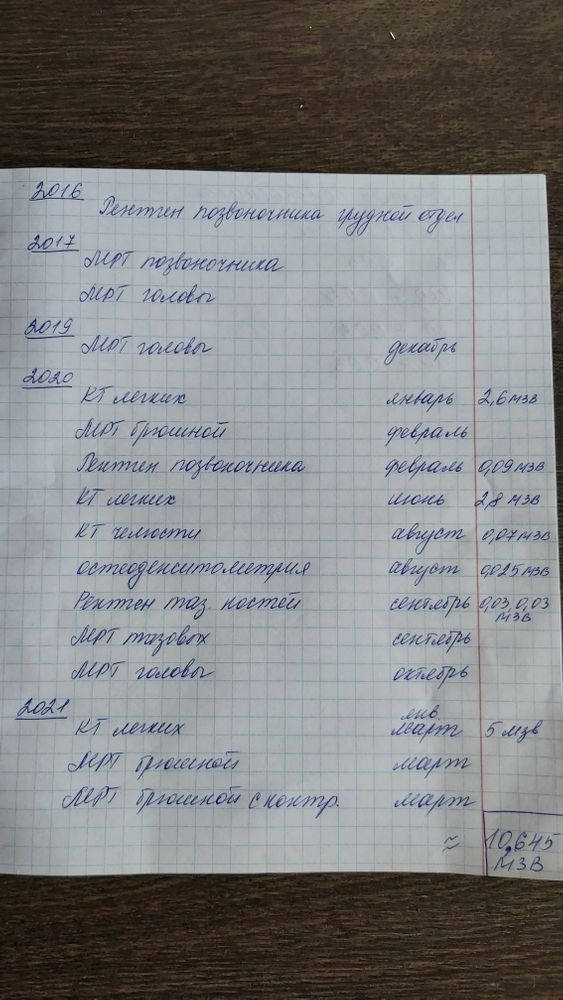 2016
Рентген позвоночника грудной отдел
2017
МРТ позвоночника
МРТ головы
2019
МРТ головы декабрь
2020
КТ легких январь 2,6 мзв
МРТ брюшной февраль
Рентген позвоночника февраль 0,09 мзв
КТ легких июнь 2,8 мзв
КТ челюсти август 0,07 мзв
остеоденситометрия август 0,025 мзв
Рентген таз. костей сентябрь 0,03, 0,03 мзв
МРТ тазовых сентябрь
МРТ головы октябрь
2021
янв.
КТ легких март 5 мзв
МРТ брюшной март
МРТ брюшной с контр. март
≈ 10,645
МЗВ